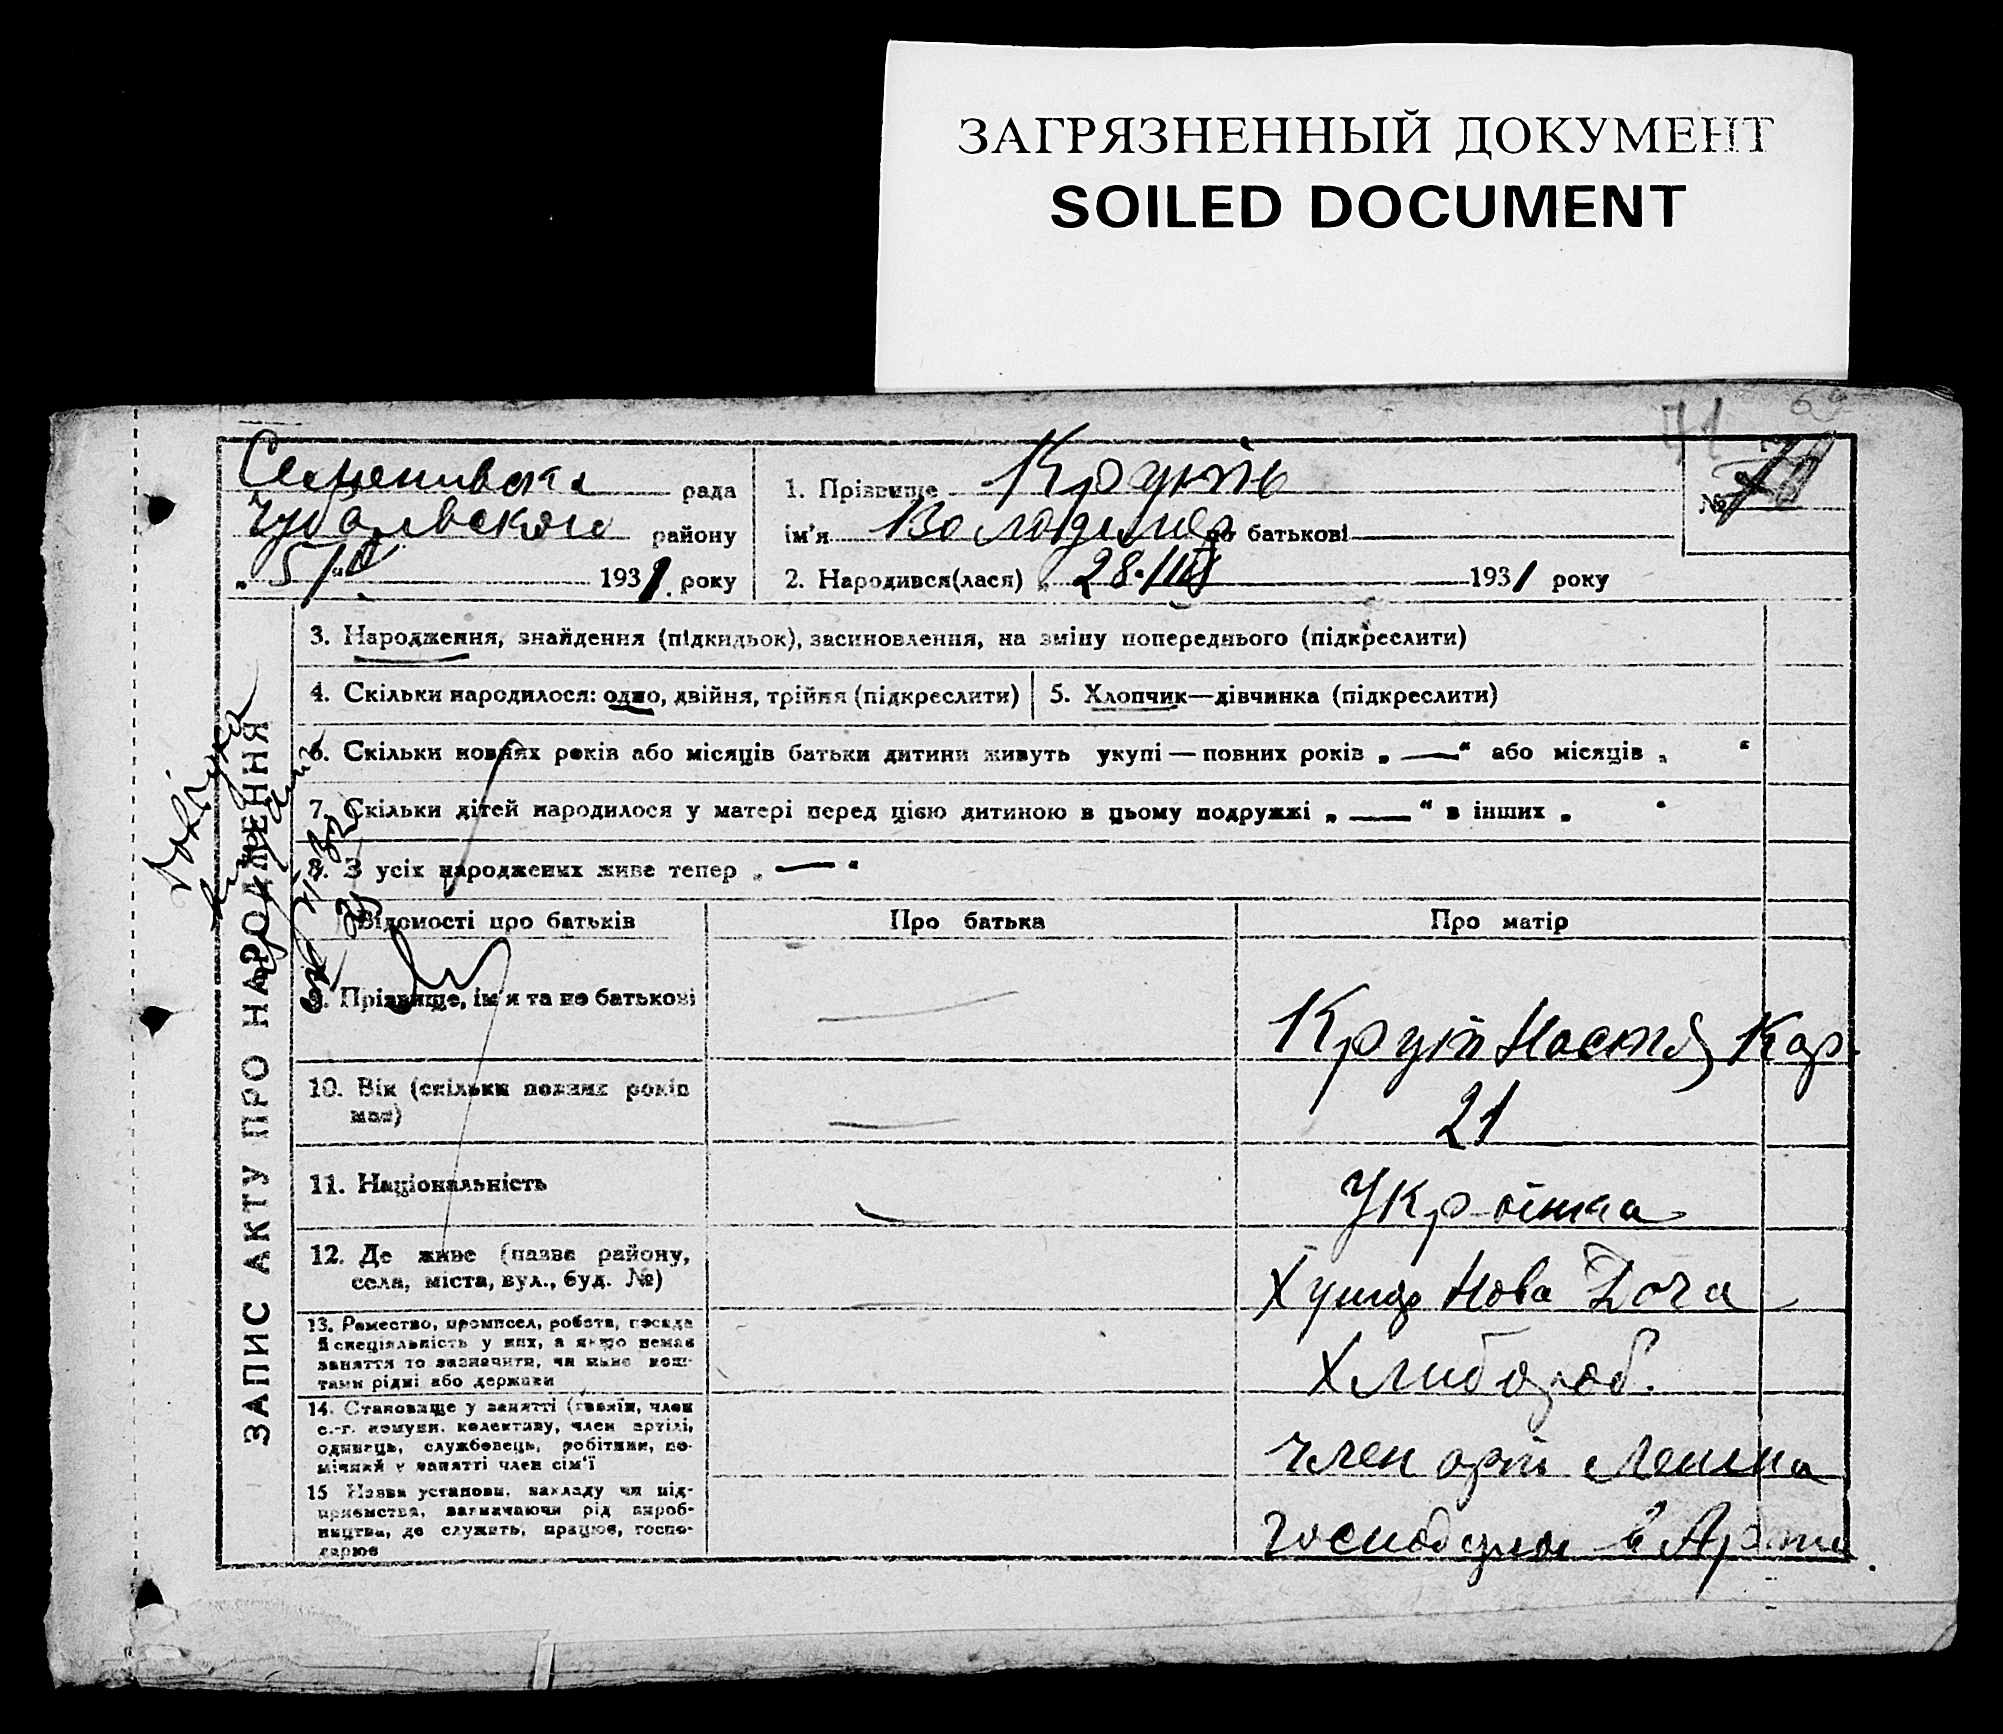 ЗАГРЯЗНЕННЫЙ ДОКУМЕНТ
SOILED DOCUMENT
71 69
рада
району
5/IV 1931 року
1. Прізвище
ім'я Володимер по батькові
2. Народився(лася) „ 28./III 1931 року
№ 70
ЗАПИС АКТУ ПРО НАРОДЖЕННЯ
3. Народження, знайдення (підкидьок), засиновлення, на зміну попереднього (підкреслити)
4. Скільки народилося: одно, двійня, трійня (підкреслити)
5. Хлопчик—дівчинка (підкреслити)
6. Скільки повних років або місяців батьки дитини живуть укупі — повних років „ — “ або місяців „ “
7. Скільки дітей народилося у матері перед цією дитиною в цьому подружжі „ — “ в інших „ “
8. З усіх народжених живе тепер „ — “
Відомості про батьків
Про батька
Про матір
9. Прізвище, ім'я та по батькові
Настя Кар.
10. Вік (скільки повних років
має)
21
11. Національність
Українка
12. Де живе (назва району,
села, міста, вул., буд. №)
Хутір Нова Доча
13. Ремество, промисел, робота, посада
й спеціяльність у них, а якщо немає
заняття то зазначити, чи живе кош-
тами рідні або держави
Хлибороб.
14. Становище у занятті (хазяїн, член
с.-г. комуни, колективу, член артілі,
одинець, службовець, робітник, по-
мічний у занятті член сім'ї
член арт. Леніна
15 Назва установи, закладу чи під-
приємства, зазначаючи рід вироб-
ництва, де служить, працює, госпо-
дарює